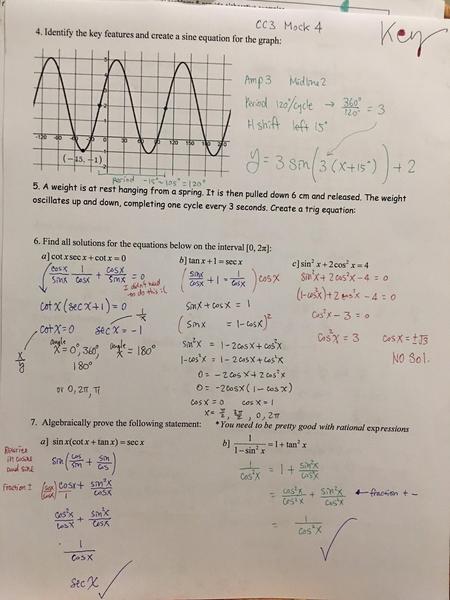 CC3 Mock 4
Key
4. Identify the key features and create a sine equation for the graph:
Amp 3 Midline 2
Period 120°/cycle → 360°/120° = 3
H shift left 15°
y = 3 sin(3(x+15°)) + 2
(-15, -1)
period -15°→105° = 120°
5. A weight is at rest hanging from a spring. It is then pulled down 6 cm and released. The weight
oscillates up and down, completing one cycle every 3 seconds. Create a trig equation:
6. Find all solutions for the equations below on the interval [0, 2π]:
a] cot x sec x + cot x = 0
cosx/sinx 1/cosx + cosx/sinx = 0
I didn't need to do this :(
cot x (sec x + 1) = 0
cot x = 0 sec x = -1
x/y
1/x
angle x = 0°, 360°, 180°
angle x = 180°
or 0, 2π, π
b] tan x + 1 = sec x
(sinx/cosx + 1 = 1/cosx) cos x
sin x + cos x = 1
(sin x = 1 - cos x)²
sin²x = 1 - 2cosx + cos²x
1 - cos²x = 1 - 2cosx + cos²x
0 = -2cosx + 2cos²x
0 = -2cosx (1 - cosx)
cos x = 0 cos x = 1
x = π/2, 3π/2, 0, 2π
c] sin² x + 2cos² x = 4
sin²x + 2cos²x - 4 = 0
(1-cos²x) + 2cos²x - 4 = 0
cos²x - 3 = 0
cos²x = 3 cos x = ±√3
NO Sol.
7. Algebraically prove the following statement: *You need to be pretty good with rational expressions
a] sin x(cot x + tan x) = sec x
Rewrite in cosine and sine
sin(cos/sin + sin/cos)
Fraction ±
(cosx/cosx) cosx/1 + sin²x/cosx
cos²x/cosx + sin²x/cosx
1/cosx
sec x
b] 1/(1 - sin² x) = 1 + tan² x
1/cos²x = 1 + sin²x/cos²x
= cos²x/cos²x + sin²x/cos²x ← fraction + -
= 1/cos²x